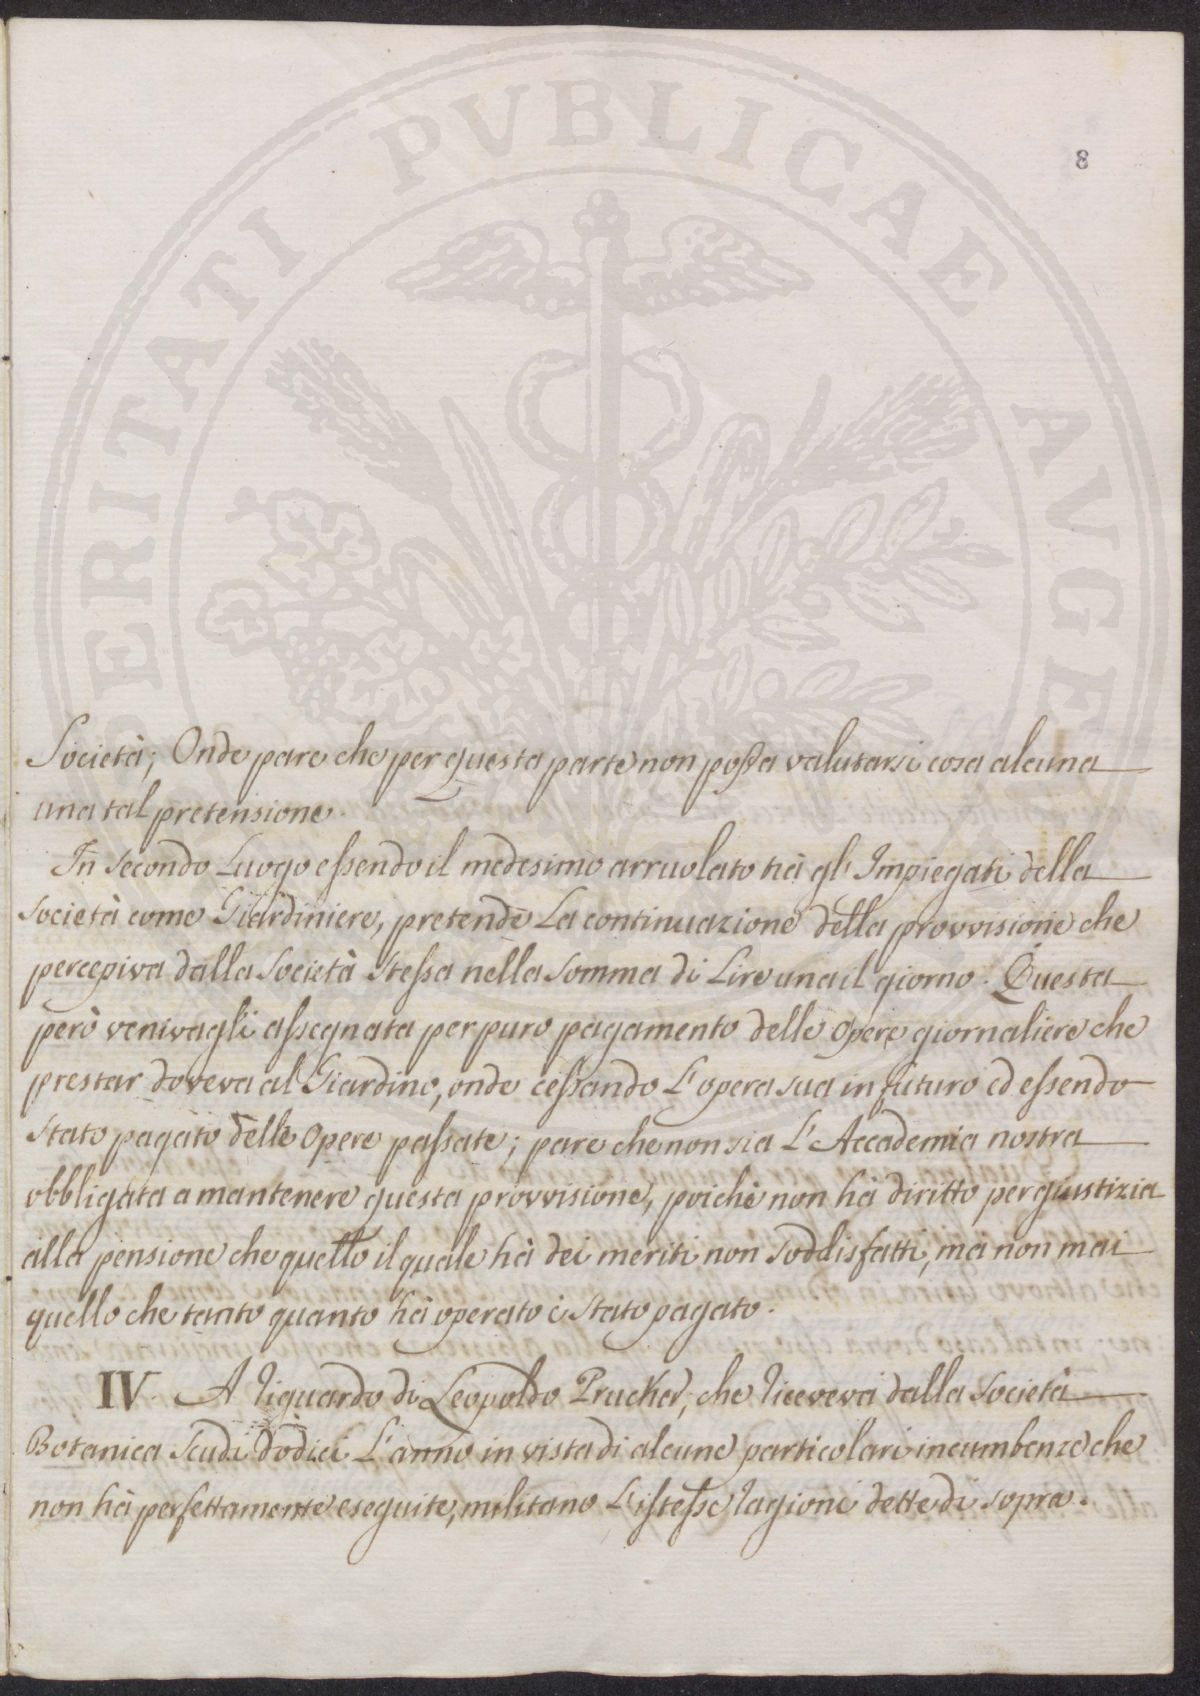 8
PROSPERITATI PVBLICAE AVGE
Società; Onde pare che per questa parte non possa valutarsi cosa alcuna
una tal pretensione.
In secondo Luogo essendo il medesimo arruolato trà gl' Impiegati della
Società come Giardiniere, pretende La continuazione della provvisione che
percepiva dalla Società stessa nella somma di Lire una il giorno. Questa
però venivagli assegnata per puro pagamento delle Opere giornaliere che
prestar doveva al Giardino, onde cessando L'opera sua in futuro ed essendo
stato pagato delle Opere passate; pare che non sia L'Accademia nostra
obbligata a mantenere questa provvisione, poichè non hà diritto per giustizia
alla pensione che quello il quale hà dei meriti non soddisfatti, mà non mai
quello che tanto quanto hà operato è stato pagato.
IV. A riguardo di Leopoldo Prucker, che riceveva dalla Società
Botanica Scudi dodici L'anno in vista di alcune particolari incumbenze che
non hà perfettamente eseguite, militano L'istesse ragioni dette di sopra.